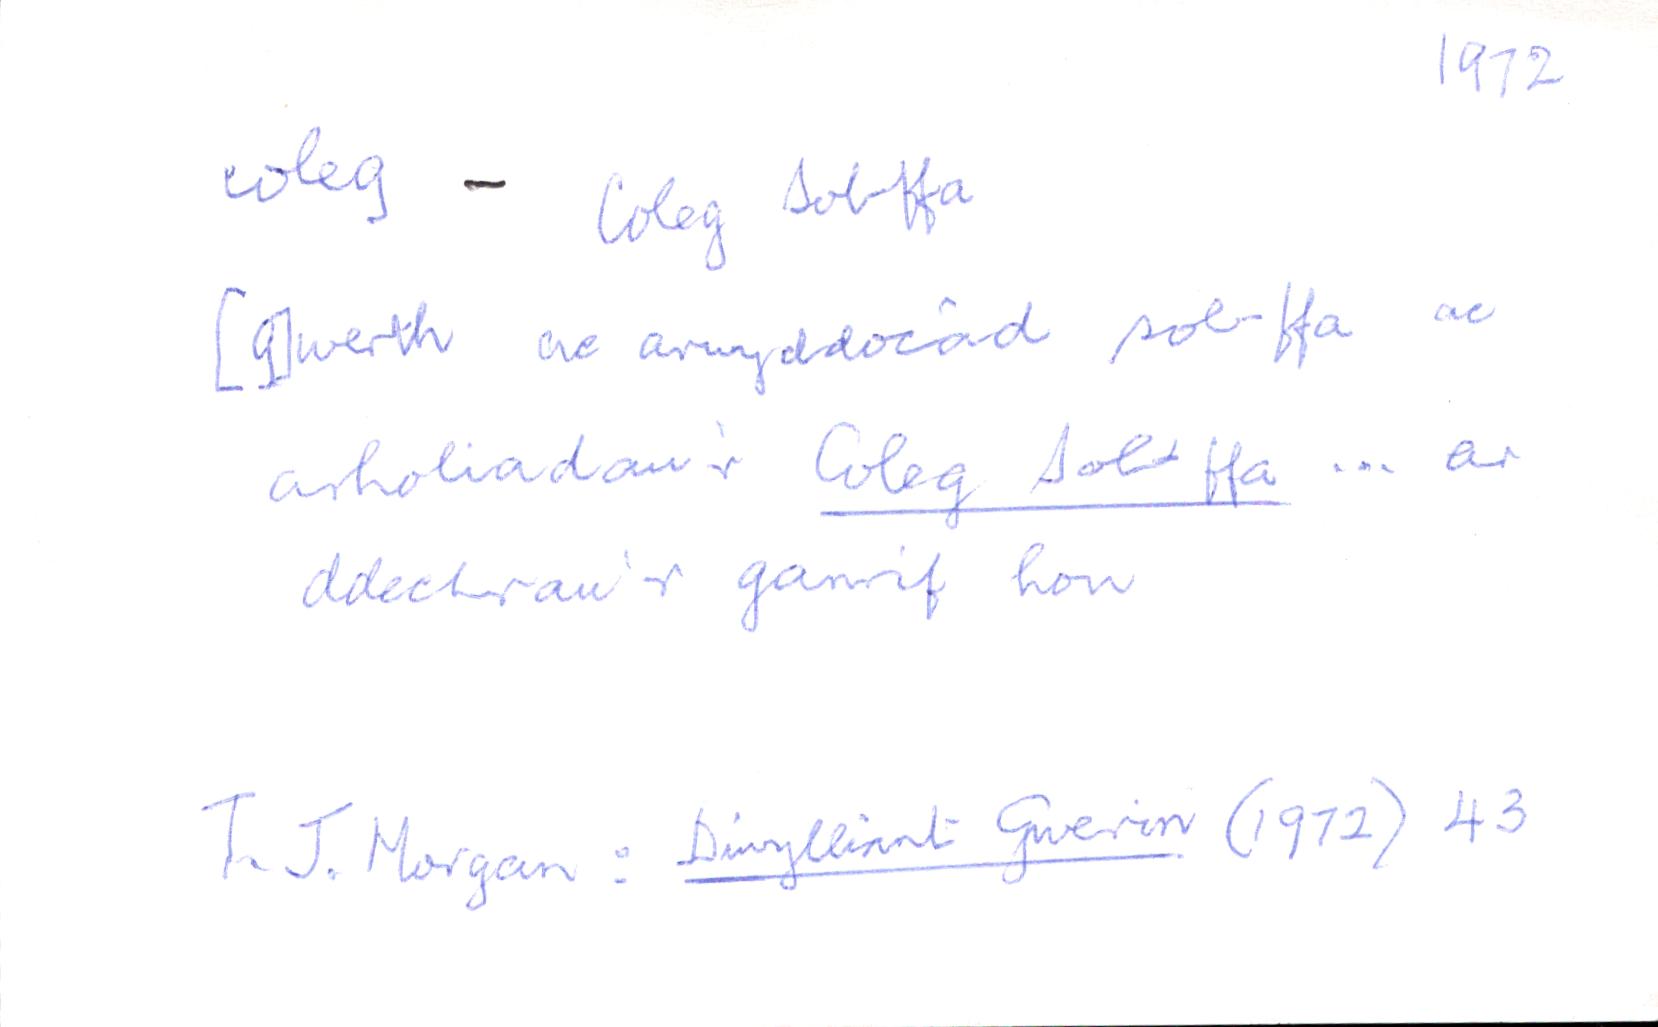 1972
coleg - Coleg Sol-ffa
[g]werth ac arwyddocâd sol-ffa ac
arholiadau'r Coleg Sol-ffa ... ar
ddechrau'r ganrif hon
T. J. Morgan : Diwylliant Gwerin (1972) 43